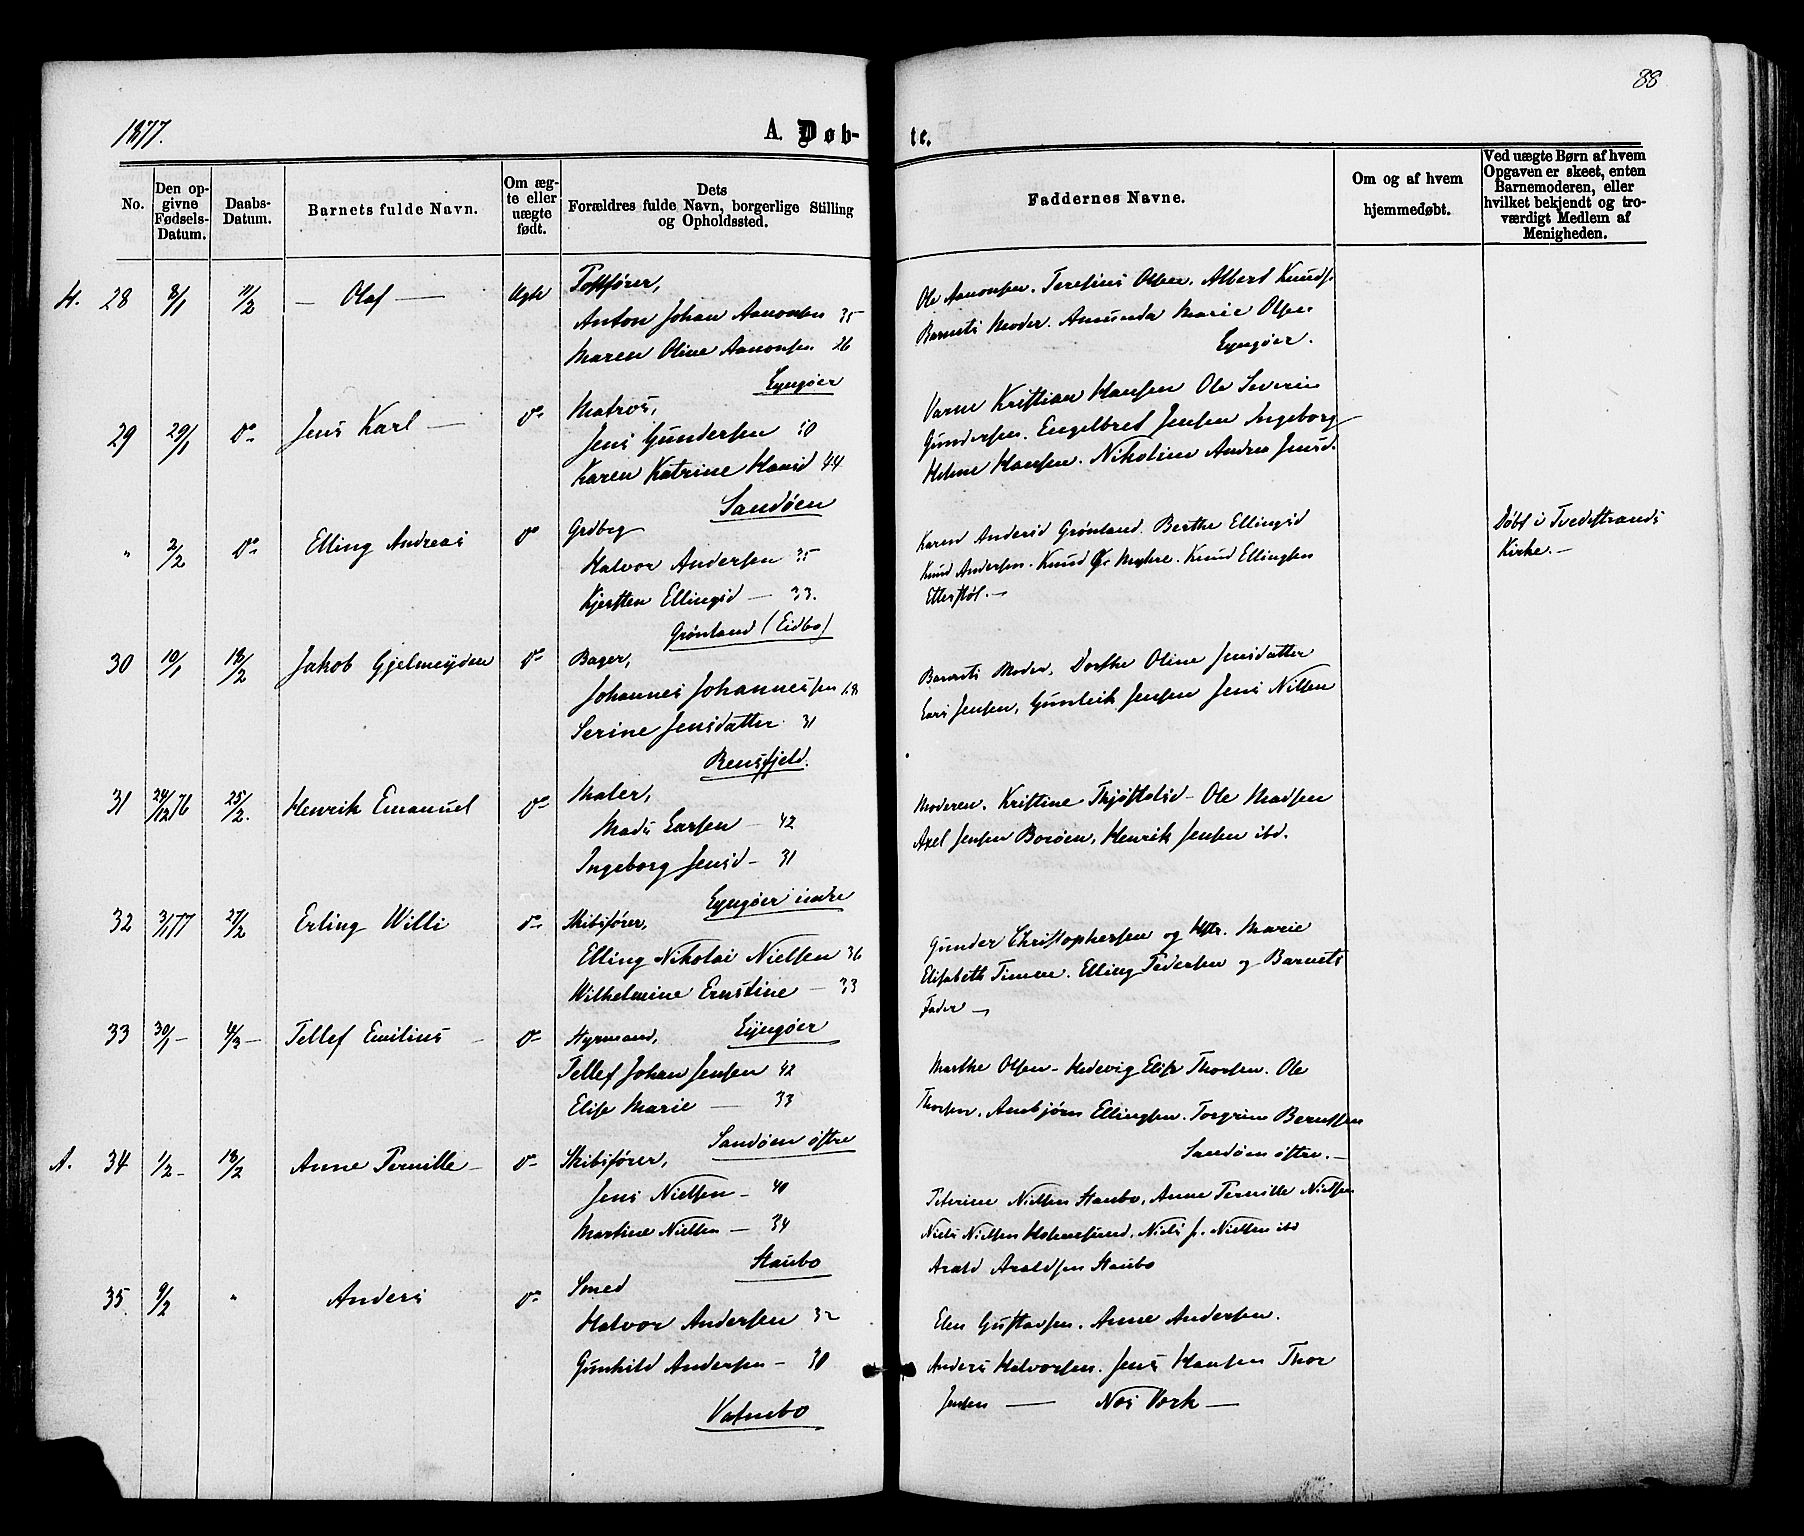 88
1877.
A. Døb-
te.
No.
Den op-
givne
Fødsels-
Datum.
Daabs-
Datum.
Barnets fulde Navn.
Om æg-
te eller
uægte
født.
Dets
Forældres fulde Navn, borgerlige Stilling
og Opholdssted.
Faddernes Navne.
Om og af hvem
hjemmedøbt.
Ved uægte Børn af hvem
Opgaven er skeet, enten
Barnemoderen, eller
hvilket bekjendt og tro-
værdigt Medlem af
Menigheden.
H. 28 8/1 11/2 — Olaf — Ægte
Anton Johan Aanonsen 35
Maren Oline Aanonsen 26
Lyngøer
Ole Aanonsen. Teresius Olsen. Albert Knuds.
Barnets Moder. Amunda Marie Olsen
Lyngøer.
29 29/1 do Jens Karl — do Matros,
Jens Gundersen 50
Karen Katrine Hansd 44
Sandøen
Kristian Hansen Ole Severin
Gundersen. Engelbret Jensen Ingeborg
Helene Hansen. Nikoline Andrea Jensd.
" 2/2 do Elling Andreas do Grdbrg
Halvor Andersen 35
Kjersten Ellingsd — 33.
Grønland (Eidbo)
Karen Andersd Grønland. Berthe Ellingsd
Knud Andersen. Knud Myhre. Knud Ellingsen
Etterstøl. —
Døbt i Tvedestrands
Kirke. —
30 10/1 18/2 Jakob Gjelmeyden do Bager,
Johannes Johannessen
Serine Jensdatter 31
Rensfjeld.
Barnets Moder, Dorthe Oline Jensdatter
Lars Jensen, Gunleik Jensen Jens Nilsen
31 24/12 76 25/2. Henrik Emanuel do Maler,
Mads Larsen — 42
Ingeborg Jensd — 31
Lyngøer indre
Moderen. Kristine Thjøstolsd — Ole Madsen
Axel Jensen Borøen, Henrik Jensen ibd.
32 3/1 77 27/2 Erling Willi do Skibsfører,
Elling Nikolai Nielsen 36
Wilhelmine Ernstine — 33
Lyngøer
Gunder Christophersen og Hstr. Marie
Elisabeth Timen. Elling Pedersen og Barnets
Fader —
33 30/1 — 4/3 — Tellef Emilius — do Styrmand,
Tellef Johan Jensen 42
Elise Marie — 33
Sandøen østre
Marthe Olsen — Hedevig Elise Thorsen. Ole
Thorsen. Anebjørn Ellingsen. Torgrim Berntsen
Sandøen østre. —
A. 34 1/2 — 18/2 Anne Pernille — do Skibsfører,
Jens Nielsen — 40
Martine Nielsen — 34
Staubo
Peterine Nielsen Staubo, Anne Pernille Nielsen
Niels Nielsen Holmesund. Niels J. Nielsen ibd
Arald Araldsen Staubo
35. 9/2 " Anders do Smed
Halvor Andersen 32
Gunhild Andersen — 30
Vatnebo
Elen Gustavsen. Anne Andersen.
Anders Halvorsen. Jens Hansen Thor
Jensen — Næs Verk —